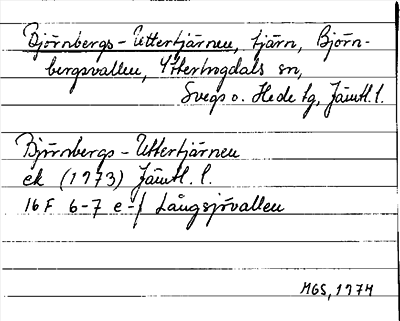 Björnbergs-Uttertjärnen, tjärn, Björn-
bergsvallen, Ytterhogdals sn,
Svegs o. Hede tg, Jämtl. l.
Björnbergs-Uttertjärnen
ek (1973) Jämtl. l.
16F 6-7 e-f Långsjövallen
MGS, 1974